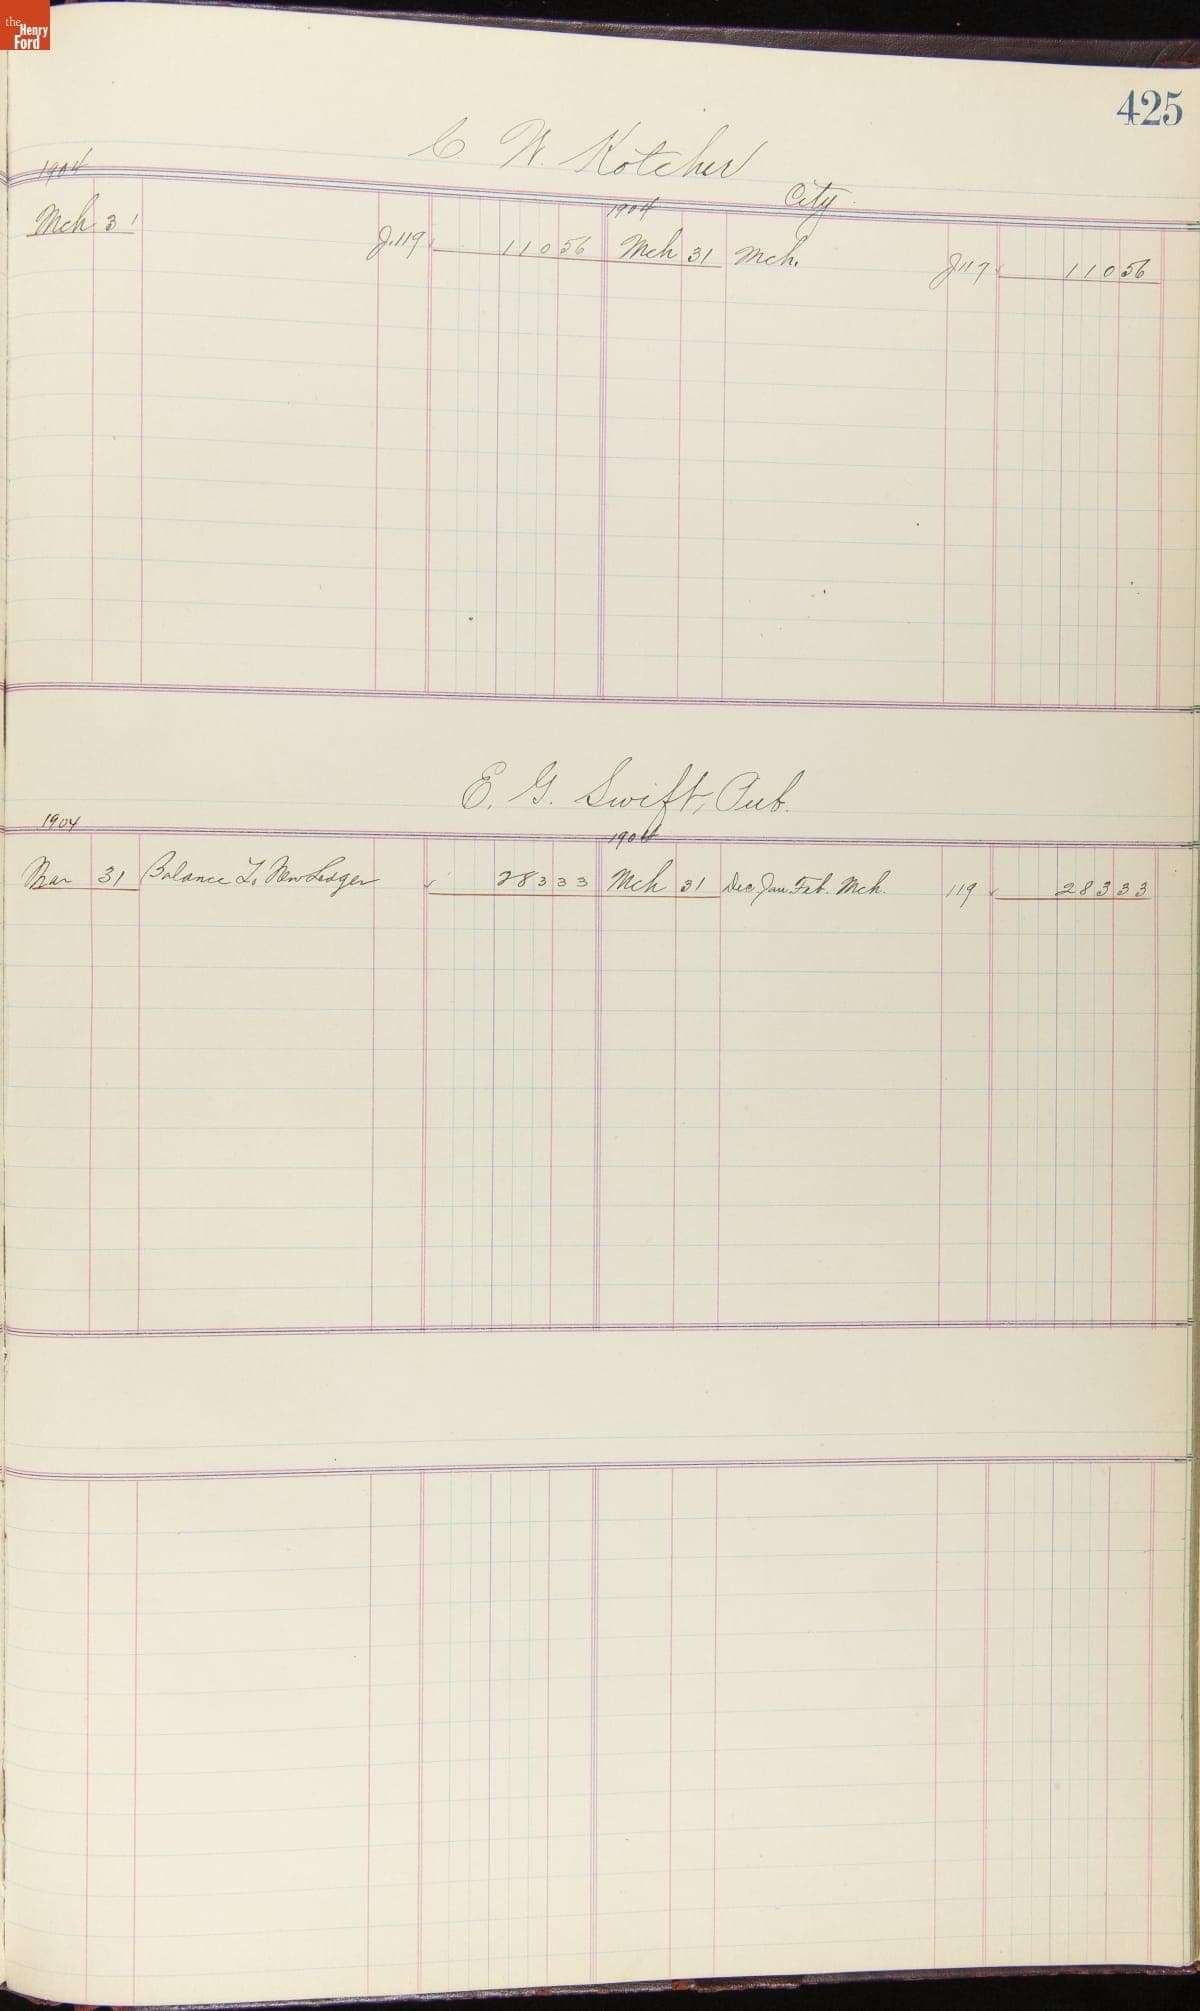 the Henry Ford
425
C W. Kotcher
City
1904 1904
Mch 31 J.119 110 56 Mch 31 Mch. J117 110 56
E. G. Swift, Pub.
1904 1904
Mar 31 Balance To New Ledger 283 33 Mch 31 Dec. Jan. Feb. Mch. 119 283 33